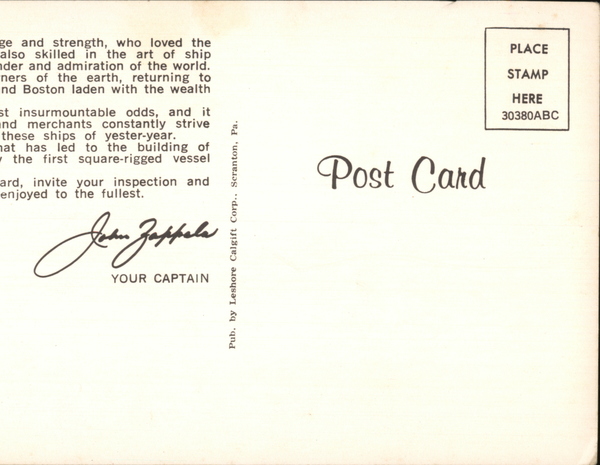 ge and strength, who loved the
also skilled in the art of ship
nder and admiration of the world.
ners of the earth, returning to
nd Boston laden with the wealth
st insurmountable odds, and it
and merchants constantly strive
these ships of yester-year.
hat has led to the building of
y the first square-rigged vessel
ard, invite your inspection and
enjoyed to the fullest.
John Zappala
YOUR CAPTAIN
Pub. by Leshore Calgift Corp., Scranton, Pa.
Post Card
PLACE
STAMP
HERE
30380ABC